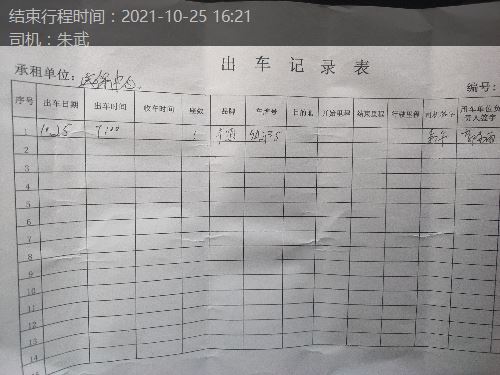 结束行程时间：2021-10-25 16:21
司机：朱武
出车记录表
承租单位：
编号：
序号 出车日期 出车时间 收车时间 座数 品牌 车牌号 目的地 开始里程 结束里程 行驶里程 司机签字 用车单位负责人签字
1 10.25 7:00
2
3
4
5
6
7
8
9
10
11
12
13
14